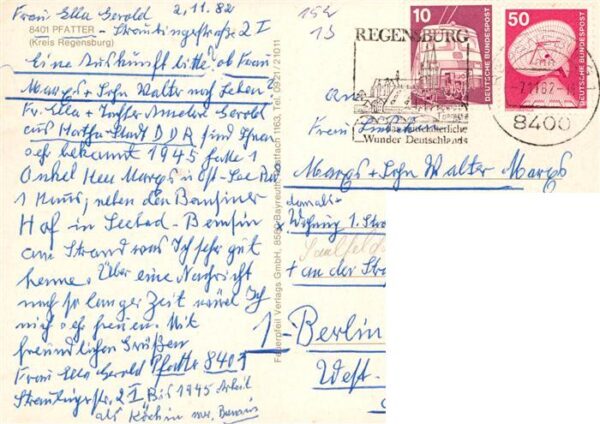 Frau Ella Gerold 2.11.82
8401 PFATTER - Straubingerstraße 2 I
(Kreis Regensburg)
Eine Auskunft bitte ob Frau
Margs + Sohn Walter noch Leben
Fr. Ella + Tochter Gerold
aus Stadt DDR sind Ihnen
bekannt 1945 hatte 1
Onkel Herr Margs in
1 Haus, neben den Bansiner
Hof in Seebad-Bansin
am Strand was Ich sehr gut
kenne. Über eine Nachricht
nach so langer Zeit würde Ich
mich freuen. Mit
freundlichen Grüßen
Frau Ella Gerold Pfatter 8401
Straubingerstr. 2 I Bis 1945 Arbeit
als Köchin Bansin
Feuerpfeil Verlags GmbH, 8580 Bayreuth, Postfach 1163, Tel. 0921/21011
152
13
REGENSBURG
Das mittelalterliche
Wunder Deutschlands
10
DEUTSCHE BUNDESPOST
50
DEUTSCHE BUNDESPOST
8400
an
Frau
Margs + Sohn Walter Margs
damals
Wohnung 1.
Saalfeld
+ an der
1-Berlin
West-